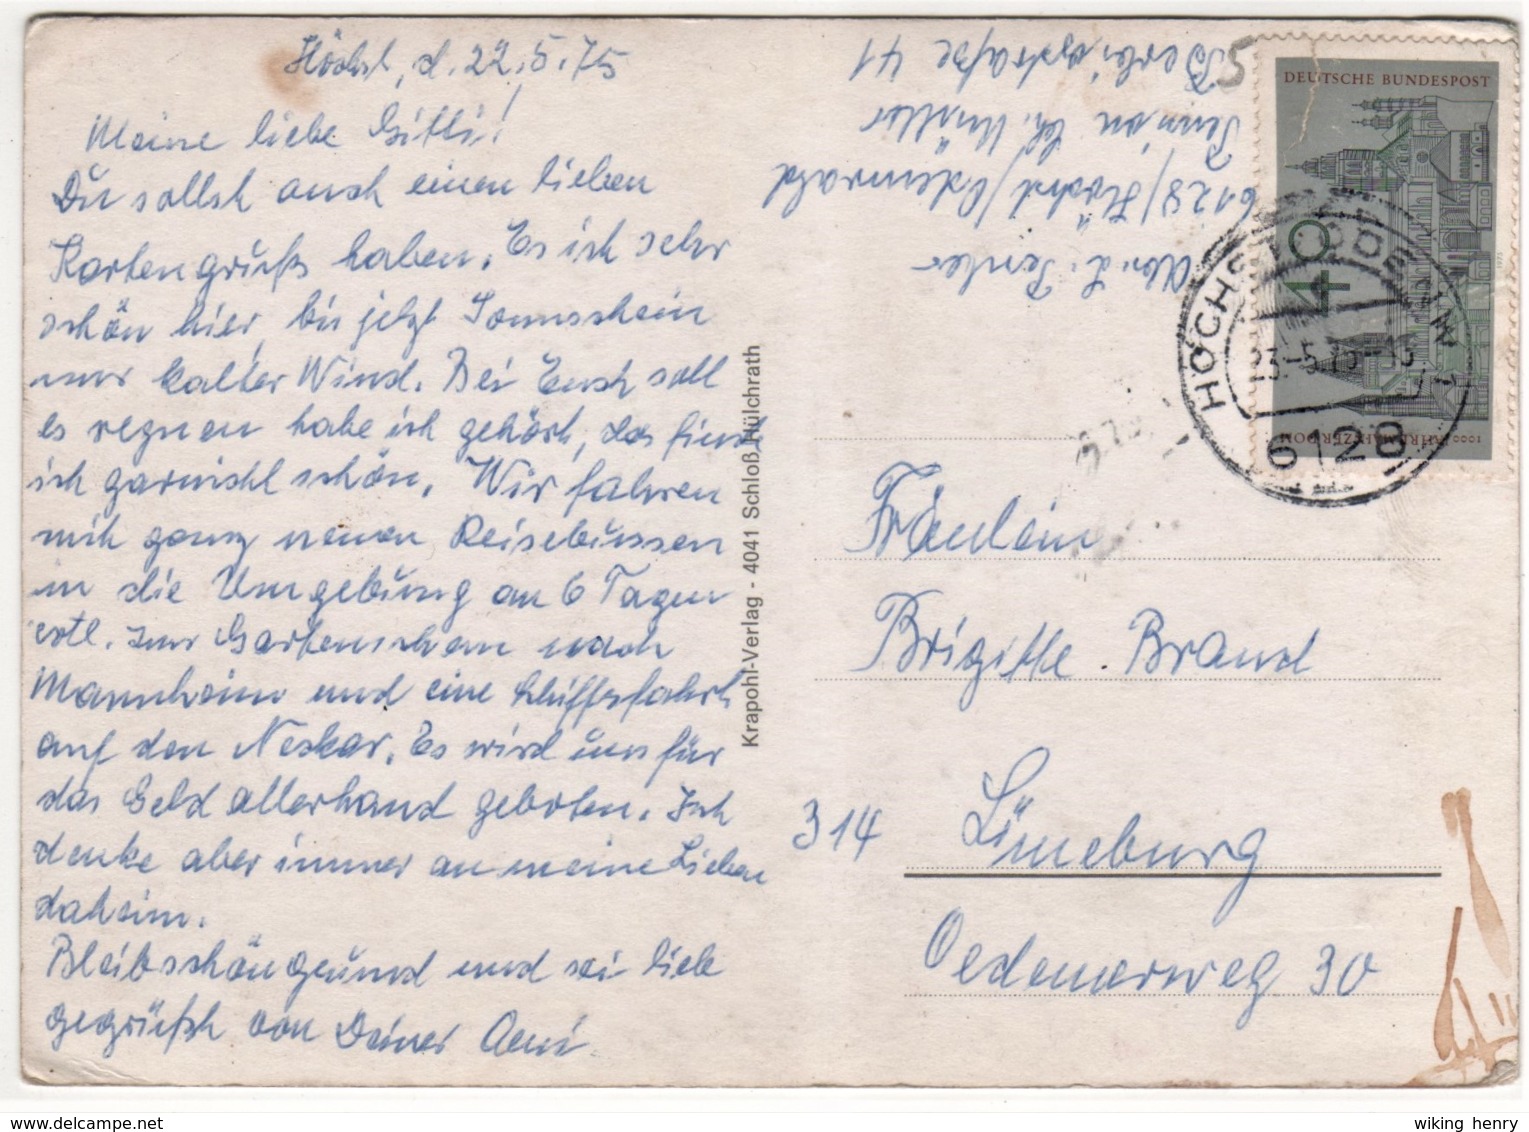 Höchst, d. 22.5.75
Meine liebe Gitti!
Du sollst auch einen lieben
Kartengruß haben. Es ist sehr
schön hier, bis jetzt Sonnschein
nur kalter Wind. Bei Euch soll
es regnen habe ich gehört, das finde
ich garnicht schön. Wir fahren
mit ganz neuen Reisebussen
in die Umgebung an 6 Tagen
evtl. zur Gartenschau nach
Mannheim und eine Schiffsfahrt
auf den Neckar. Es wird uns für
das Geld allerhand geboten. Ich
denke aber immer an meine Lieben
daheim.
Bleib schön gesund und sei lieb
gegrüßt von Deiner Omi
Krapohl-Verlag - 4041 Schloß Hülchrath
Abs. L.
6128/Höchst/Odenwald
Pension
41
DEUTSCHE BUNDESPOST
40
1975
1000 JAHRE MAINZER DOM
HÖCHST, ODENW 1
23.-5.75-16
6128
Fräulein
Brigitte Brand
314 Lüneburg
Oedemerweg 30
wiking henry